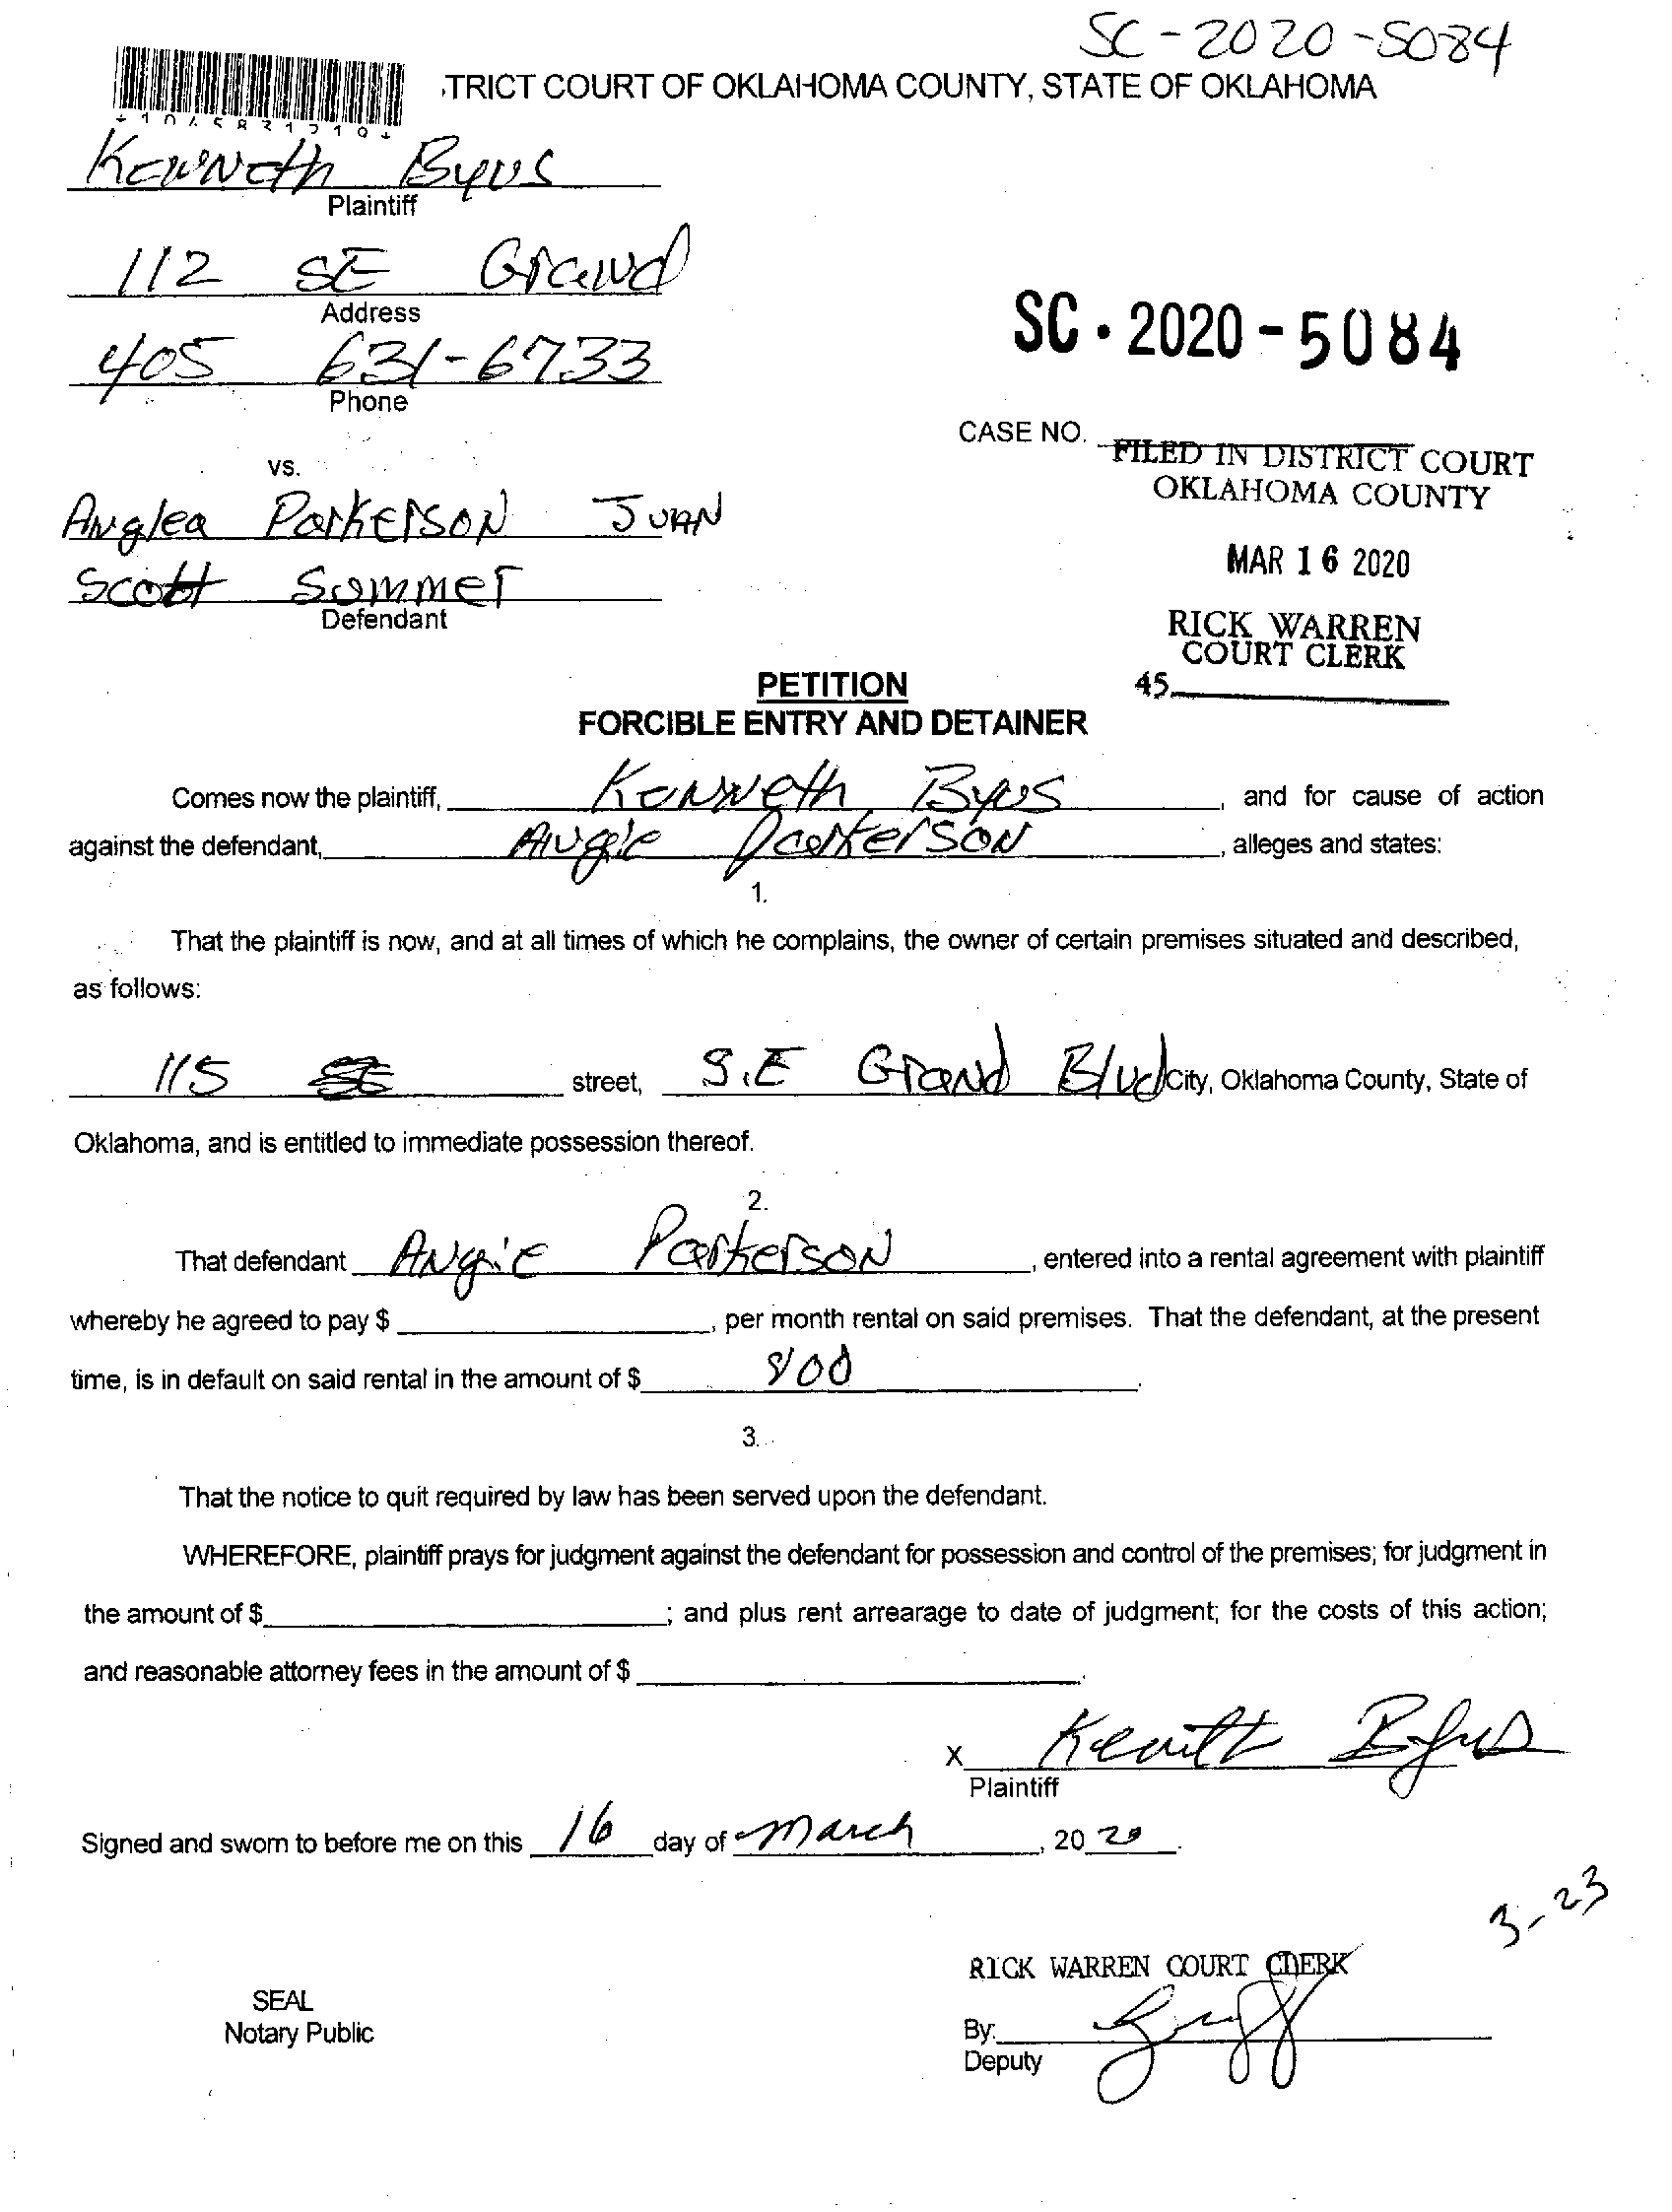 SC-2020-5084
TRICT COURT OF OKLAHOMA COUNTY, STATE OF OKLAHOMA
Kenneth Byus
Plaintiff
112 SE Grand
Address
405 631-6733
Phone
SC-2020-5084
CASE NO.
FILED IN DISTRICT COURT
OKLAHOMA COUNTY
vs.
Anglea Parkerson Juan
Scott Sommer
Defendant
MAR 16 2020
RICK WARREN
COURT CLERK
45
PETITION
FORCIBLE ENTRY AND DETAINER
Comes now the plaintiff, Kenneth Byus, and for cause of action
against the defendant, Angie Parkerson, alleges and states:
1.
That the plaintiff is now, and at all times of which he complains, the owner of certain premises situated and described,
as follows:
115 street, S.E Grand Blvd City, Oklahoma County, State of
Oklahoma, and is entitled to immediate possession thereof.
2.
That defendant Angie Parkerson, entered into a rental agreement with plaintiff
whereby he agreed to pay $, per month rental on said premises. That the defendant, at the present
time, is in default on said rental in the amount of $ 800.
3.
That the notice to quit required by law has been served upon the defendant.
WHEREFORE, plaintiff prays for judgment against the defendant for possession and control of the premises; for judgment in
the amount of $; and plus rent arrearage to date of judgment; for the costs of this action;
and reasonable attorney fees in the amount of $.
X Kenneth Byus
Plaintiff
Signed and sworn to before me on this 16 day of March, 2020.
3-23
RICK WARREN COURT CLERK
SEAL
Notary Public
By:
Deputy